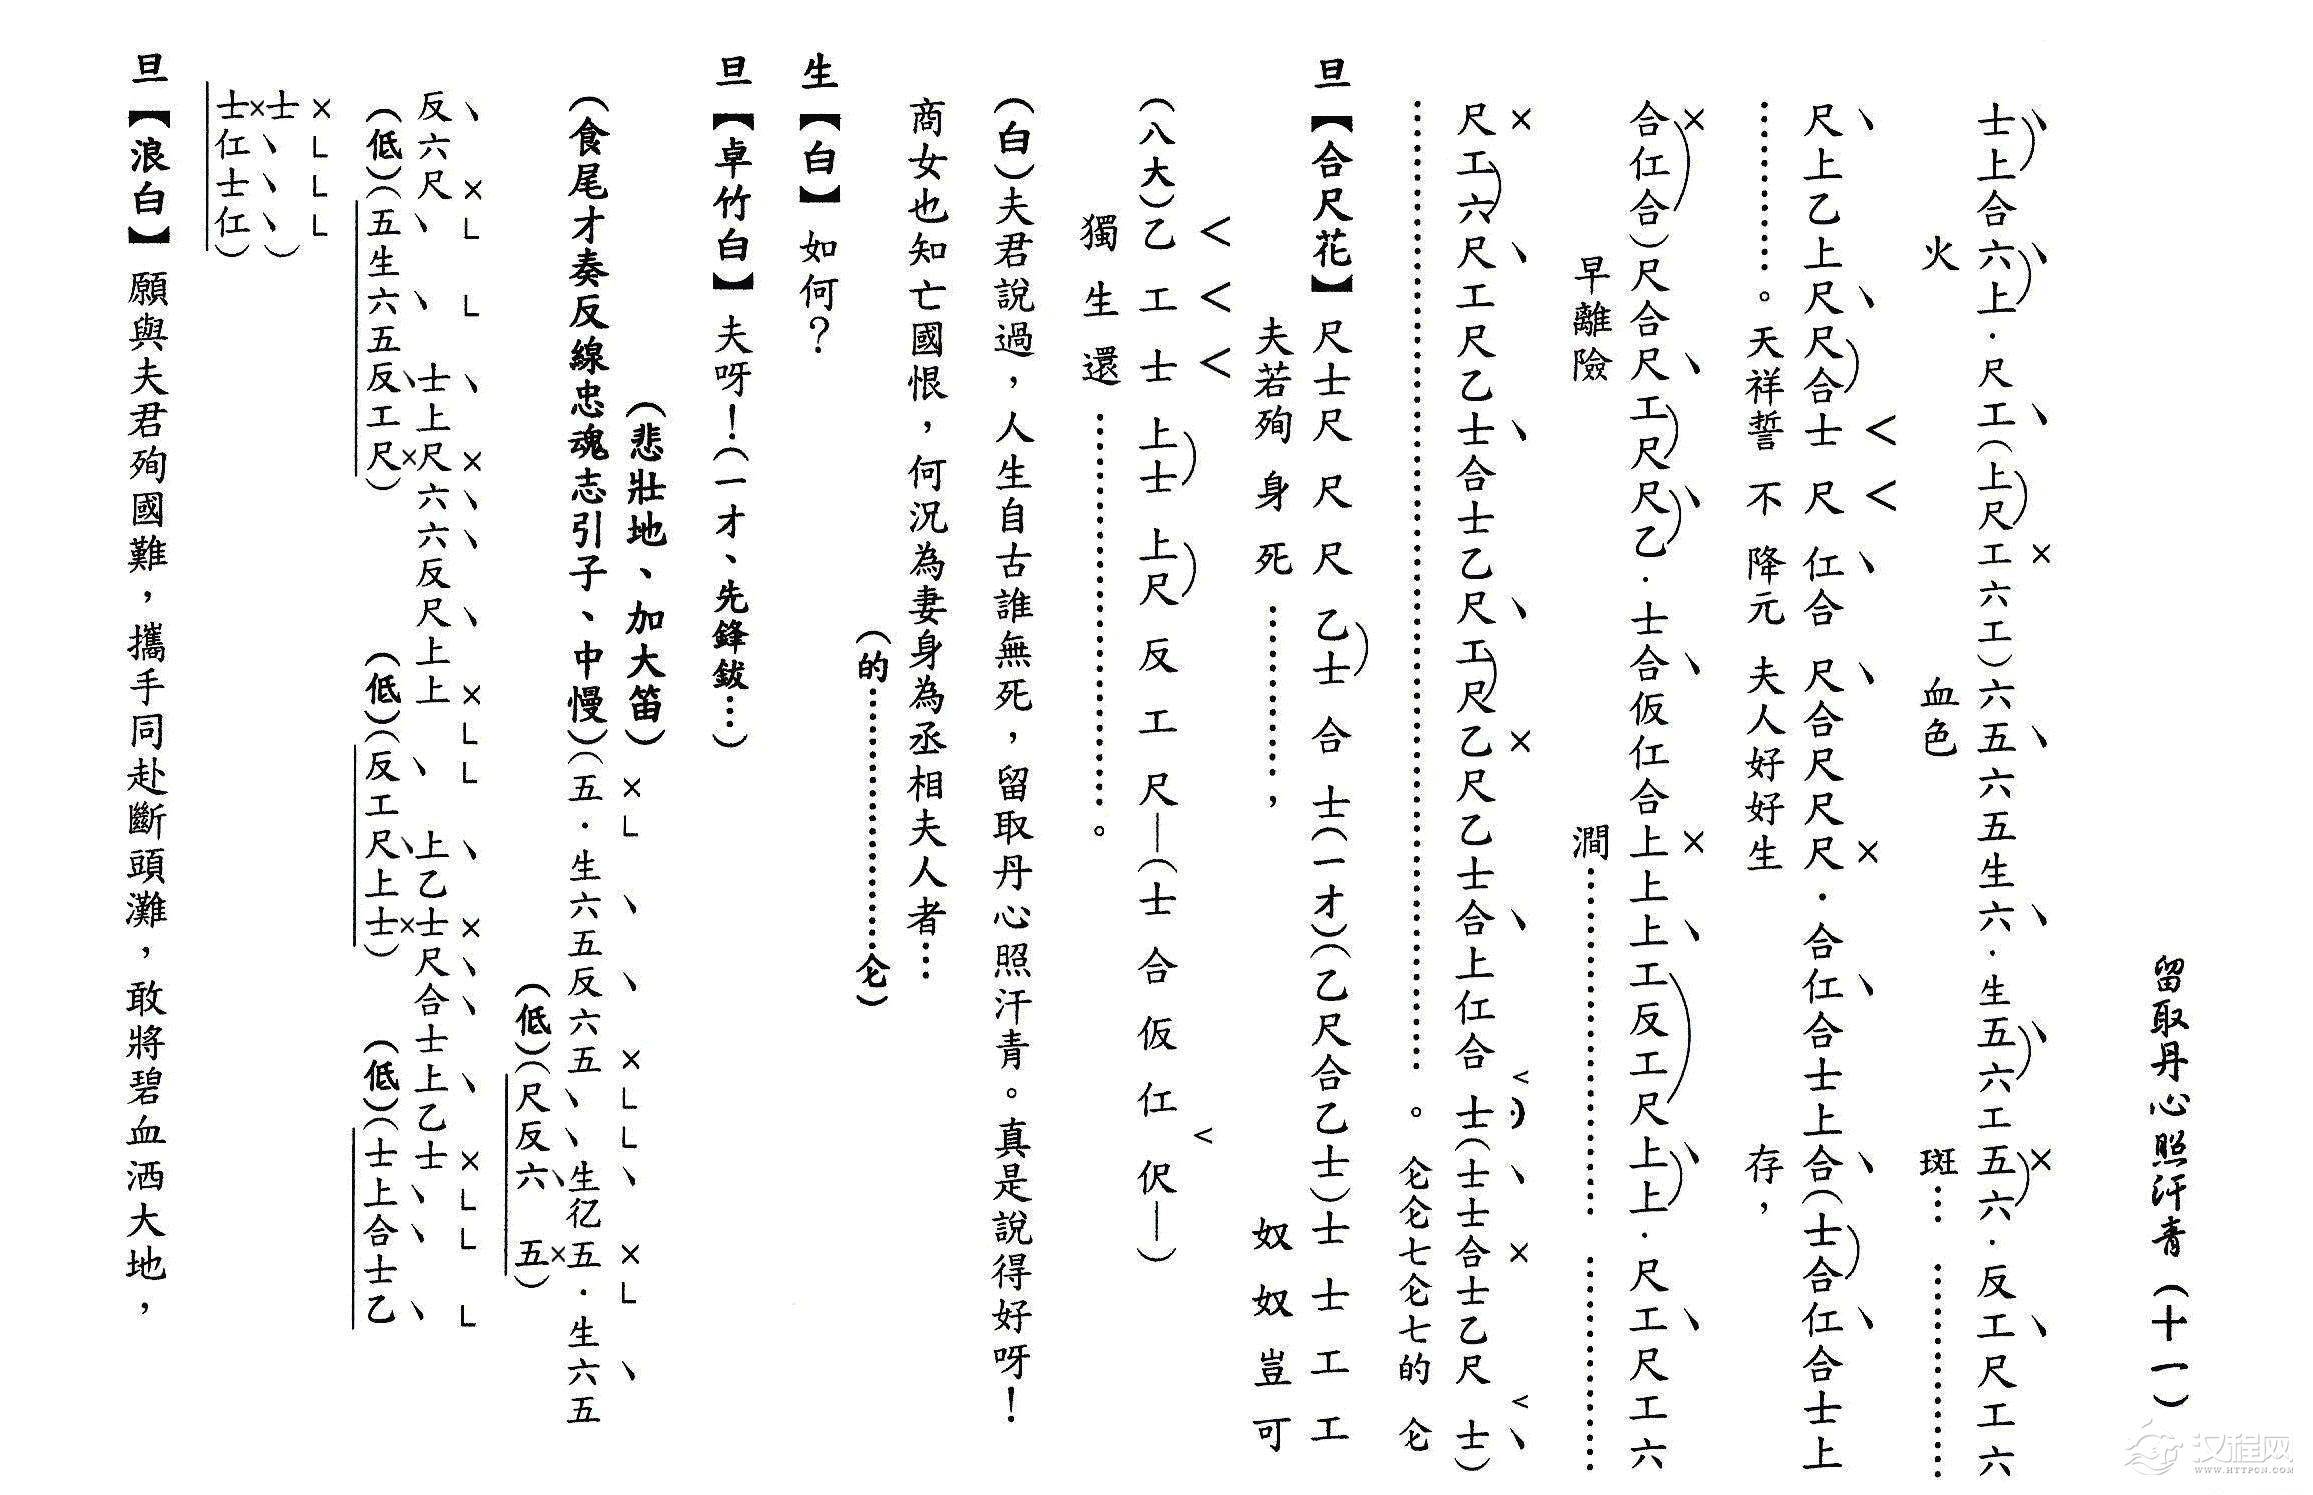 留取丹心照汗青（十一）
士上合六上．尺工（上尺工六工）六五六五生六．生五六工五六．反工尺工六
火血色斑… …………
尺上乙上尺尺合士尺仁合尺合尺尺尺．合仁合士上合（士合仁合士上
…………。天祥誓不降元夫人好好生存，
合仁合）尺合尺工尺尺乙．士合仮仁合上上上工反工尺上上．尺工尺工六
早離險澗………………… …………
尺工六尺工尺乙士合士乙尺工尺乙尺乙士合上仁合士（士士合士乙尺士）
…………………………………。仑仑七仑七的仑
旦【合尺花】尺士尺尺尺乙士合士（一才）（乙尺合乙士）士士工工
夫若殉身死…………，奴奴豈可
（八大）乙工士上士上尺反工尺—（士合仮仁伬—）
獨生還…………………。
（白）夫君說過，人生自古誰無死，留取丹心照汗青。真是說得好呀！
商女也知亡國恨，何況為妻身為丞相夫人者…
（的……………仑）
生【白】如何？
旦【卓竹白】夫呀！（一才、先鋒鈸…）
（悲壯地、加大笛）
（食尾才奏反線忠魂志引子、中慢）（五．生六五反六五生亿五．生六五
（低）（尺反六五）
反六尺士上尺六六反尺上上上乙士尺合士上乙士
（低）（五生六五反工尺）（低）（反工尺上士）（低）（士上合士乙
士
士仁士仁）
旦【浪白】願與夫君殉國難，攜手同赴斷頭灘，敢將碧血洒大地，
汉程网
WWW.HTTPCN.COM